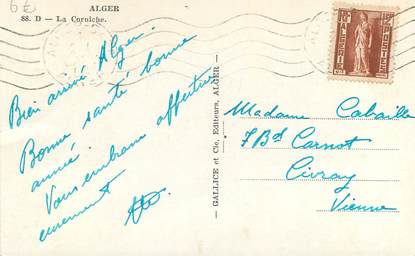 6€
ALGER
88. D - La Corniche.
Bien arrivé Alger.
Bonne santé bonne
année.
Vous embrasse affectu
eusement
GALLICE et Cie, Editeurs, ALGER
Madame
7 Bd Carnot
Civray
Vienne